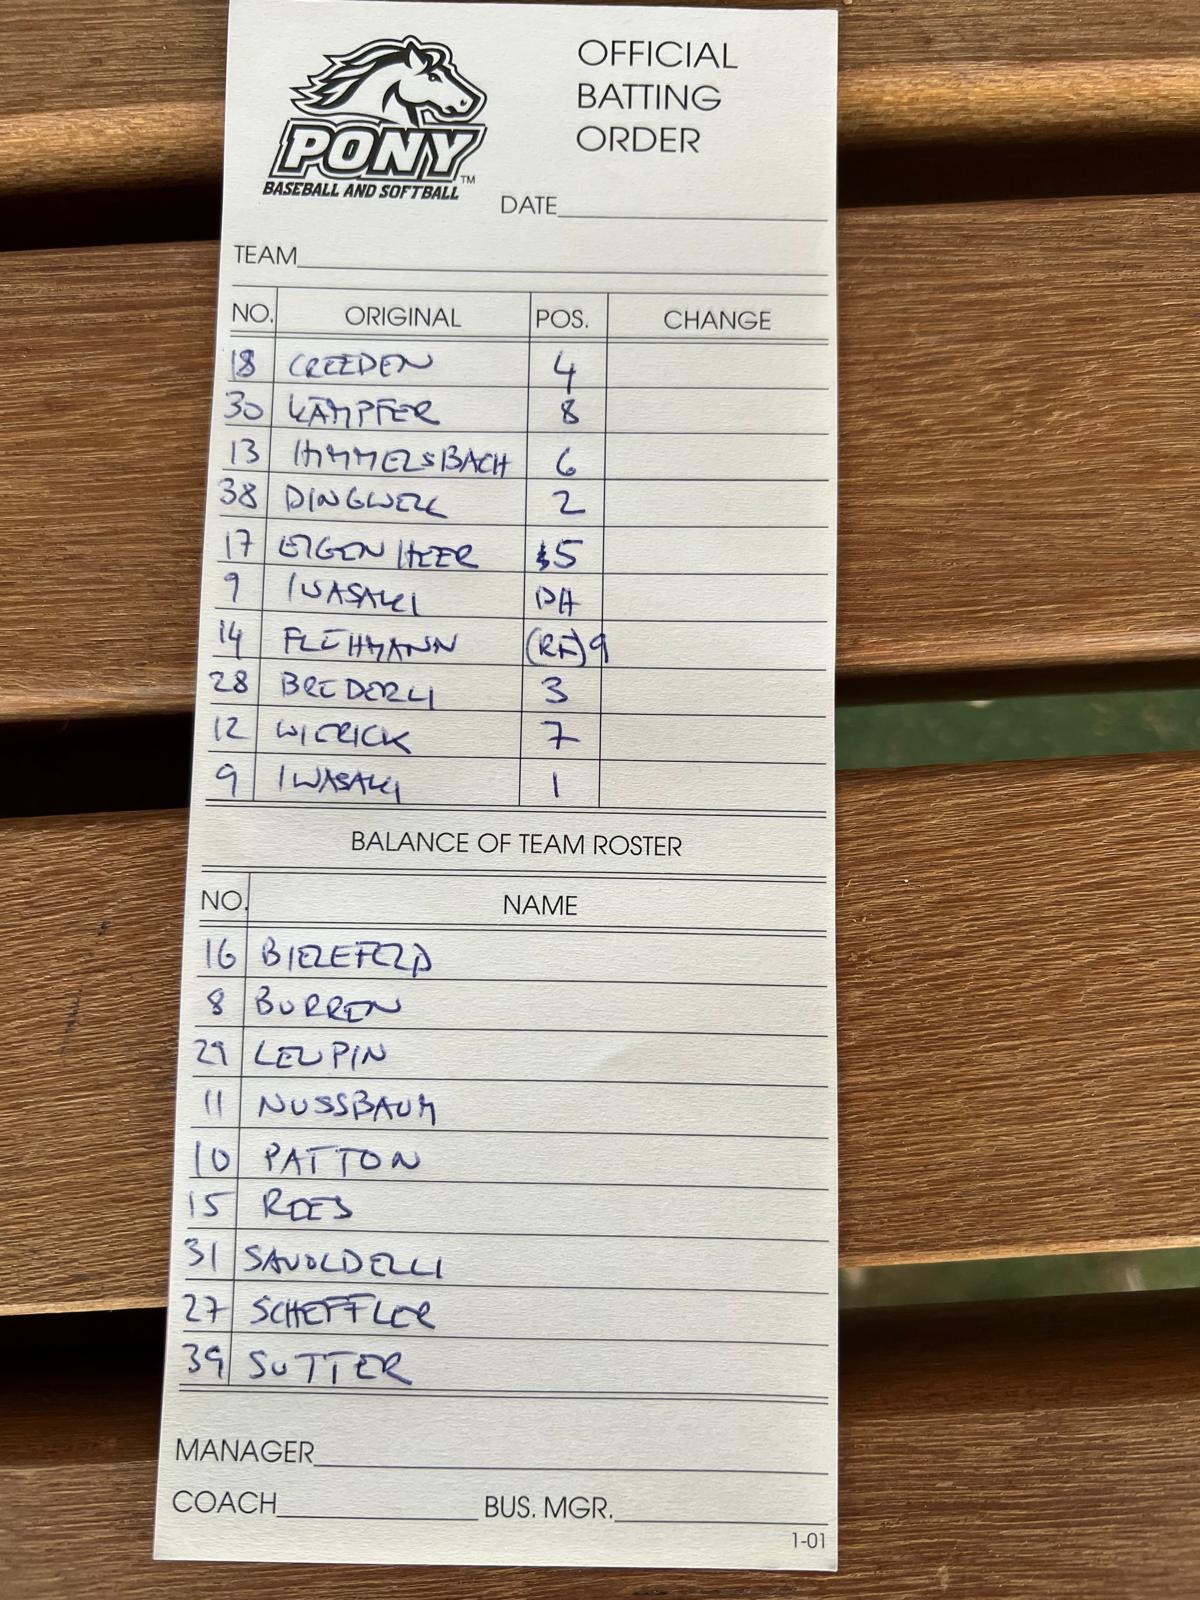 PONY™
BASEBALL AND SOFTBALL
OFFICIAL
BATTING
ORDER
DATE
TEAM
NO. ORIGINAL POS. CHANGE
18 CREEDEN 4
30 KÄMPFER 8
13 HIMMELSBACH 6
38 DINGWELL 2
17 EIGENHEER 5
9 IWASAKI DH
14 FLEHMANN (RF) 9
28 BREDERLI 3
12 WIERICK 7
9 IWASAKI 1
BALANCE OF TEAM ROSTER
NO. NAME
16 BIELEFELD
8 BURREN
29 LEUPIN
11 NUSSBAUM
10 PATTON
15 ROES
31 SAVOLDELLI
27 SCHEFFLER
39 SUTTER
MANAGER
COACH BUS. MGR.
1-01